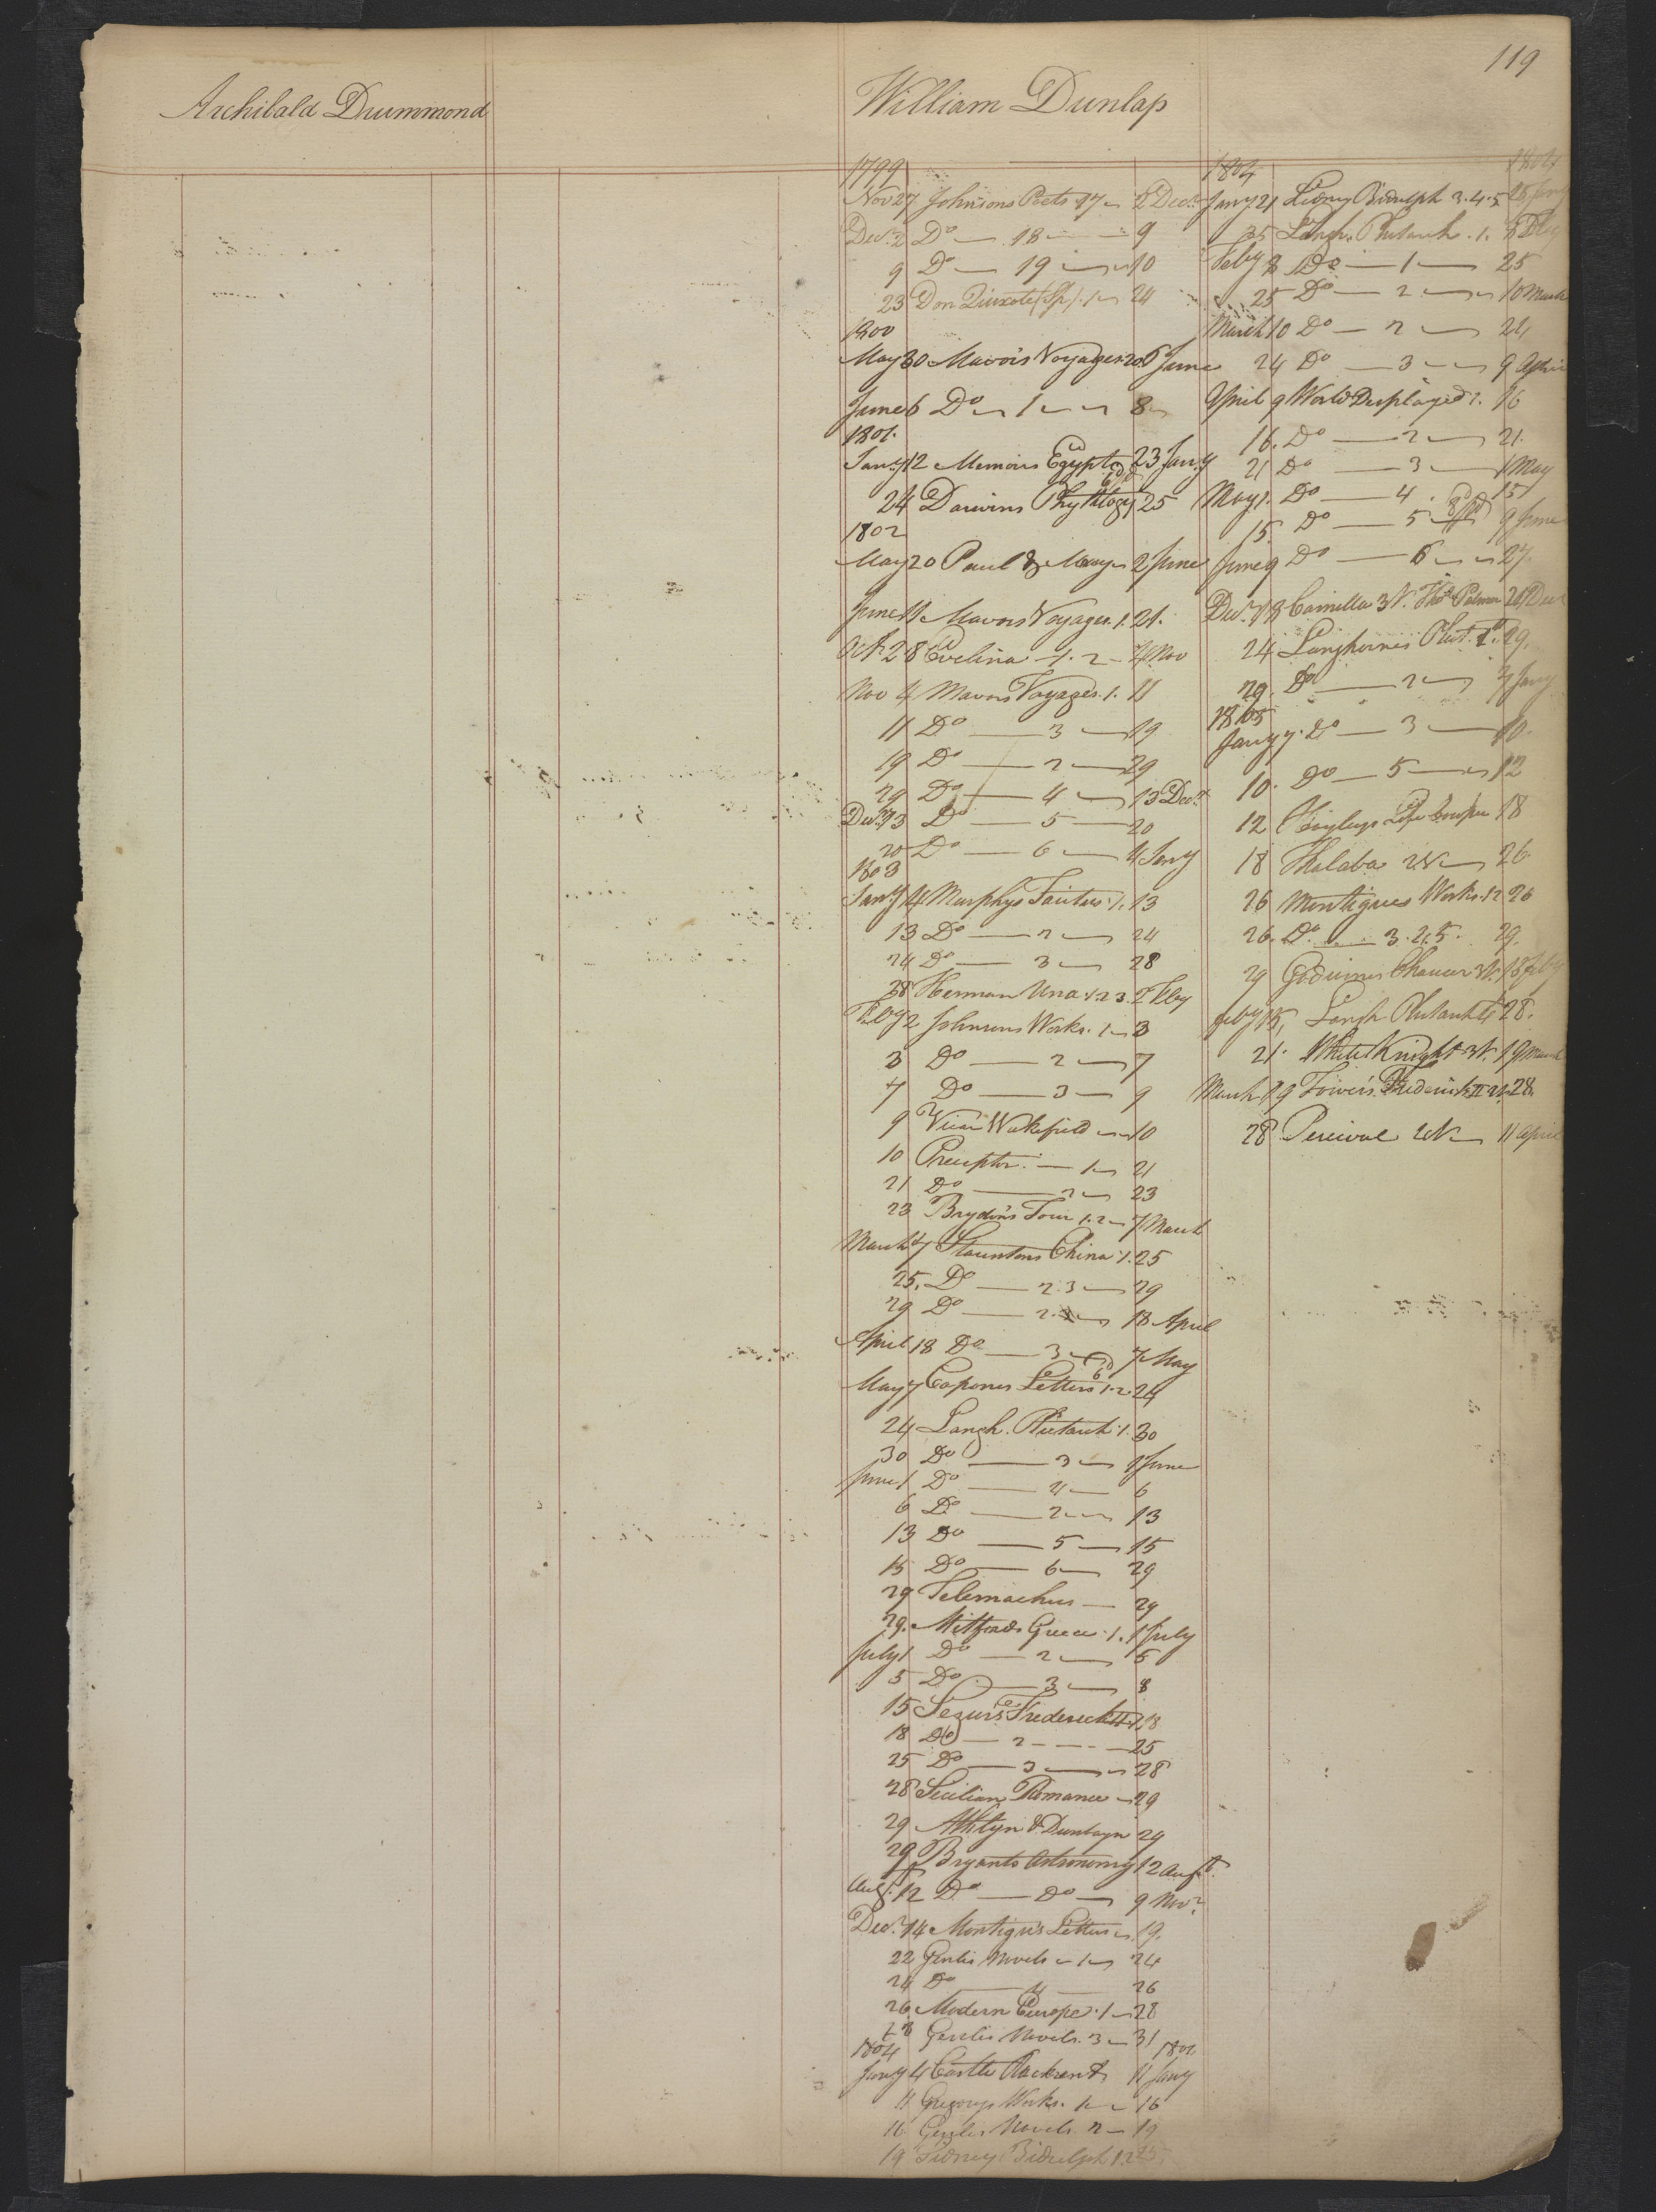 119
Archibald Drummond
William Dunlap
1799
Nov 27 Johnsons Poets 17 2 Decr
Decr 2 Do 18 9
9 Do 19 10
23 Don Quixote (Sp) 1 24
1800
May 30 Mavors Voyages 20 6 June
June 6 Do 1 8
1801.
Jany 12 Memoirs Egypt 23 Jany
24 Darwins Phytology 25
1802
May 20 Paul & Mary 2 June
June 11 Mavors Voyages. 1. 21.
Oct. 28 Evelina 1. 2 4 Nov
Nov 4 Mavors Voyages. 1. 11
11 Do 3 19
19 Do 2 29
29 Do 4 13 Decr
Decr 13 Do 5 20
20 Do 6 4 Jany
1803
Jany 4 Murphys Tacitus. 1. 13
13 Do 2 24
24 Do 3 28
28 Herman Una 1.2 3. 2 Feby
Feby 2 Johnsons Works. 1 3
3 Do 2 7
7 Do 3 9
9 Vicar Wakefield 10
10 Preceptor 1 21
21 Do 2 23
23 Brydon's Tour 1. 2 7 March
March 7 Stauntons China 1. 25
25. Do 2. 3 29
29 Do 18 April
April 18 Do 3 7 May
May 7 Capones Letters 1. 2 24
24 Langh. Plutarch 1. 30
30 Do 3 1 June
June 1 Do 4 6
6 Do 2 13
13 Do 5 15
15 Do 6 29
29 Telemachus 29
29. Mitfords Greece. 1. 1 July
July 1 Do 2 5
5 Do 3 8
15 Segur's Frederick II 1. 18
18 Do 2 25
25 Do 3 28
28 Sicilian Romance 29
29 Athlyn & Dunbayn 29
29 Bryants Astronomy 12 Augt
Augt 12 Do Do 9 Novr
Decr 14 Montigu's Letters 19.
22 Genlis Novels 1 24
24 Do 4 26
26 Modern Europe. 1 28
28 Genlis Novels. 3 31
1804
Jany 4 Castle Rackrent 11 Jany
11 Gregorys Works. 1 16
16 Genlis Novels. 2 19
19 Sidney Bidulph 1.2 25
1804 1804
Jany 21 Sidney Bidulph 3. 4. 5 25 Jany
25 Langh. Plutarch. 1. 8 Feby
Feby 8 Do 1 25
25 Do 2 10 March
March 10 Do 2 24
24 Do 3 9 April
April 9 World Displayed 1. 16
16. Do 2 21.
21 Do 3 1 May
May 1. Do 4. 15
15. Do 5 9 June
June 9 Do 6 27.
Decr 18 Camilla 3 V. Thos Palmer 24 Decr
24 Langhornes Plut. 1. 29.
29. Do 2 7 Jany
1805
Jany 7. Do 3 10.
10. Do 5 12
12 Hayleys Life Cowper 18
18 Thalaba 2 V 26
26 Montigues Works. 1 2 26
26. Do 3. 4. 5. 29.
29 Godwins Chaucer 3 V. 15 Feby
Feby 15, Langh Plutarch 4 28.
21. White Knight 3 V. 19 March
March 19 Towers. Frederick II 2 V. 28.
28 Percival 2 V 11 April